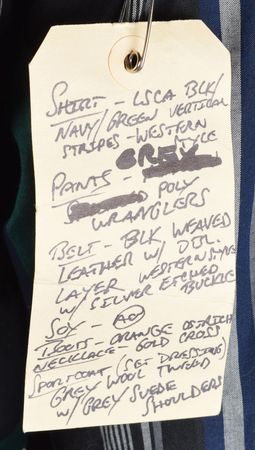 SHIRT - LSCA BLK/
NAVY/GREEN VERTICAL
STRIPES - WESTERN
STYLE
GREY
PANTS -
POLY
WRANGLERS
BELT - BLK WEAVED
LEATHER W/ DBL.
LAYER WESTERN STYLE
W/ SILVER ETCHED
BUCKLE
SOX - AO
BOOTS - ORANGE OSTRICH
NECKLACE - GOLD CROSS
SPORTCOAT (SET DRESSING)
GREY WOOL TWEED
W/ GREY SUEDE
SHOULDERS